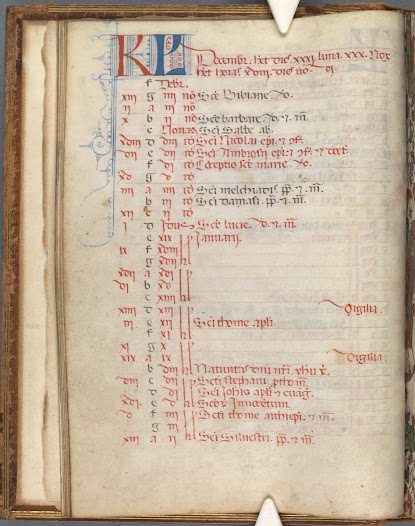 KL Decembr. het dies xxxi. luna. xxx. Nox
het horas xviii. dies vo. vi.
f Decbr.
xiii g iiii nō Sce Bibiane vo.
ii a iii nō
x b ii nō Sce barbare v. et m̄.
c Nonas Sci Sabbe ab.
xviii d viii id Sci Nicolai epi. et ɔf.
vii e vii id Sci Ambrosii epi. et ɔf. et
f vi id Cōceptio sce marie vo.
xv g v id
iiii a iiii id Sci melchiadis pp. et m̄.
b iii id Sci damasi. pp. et m̄.
xii c ii id
i d Idus Sce lucie. v. et m̄.
e xix kl Ianuarii.
ix f xviii
g xvii
xvii a xvi
vi b xv
c xiiii
xiiii d xiii Vigilia.
iii e xii Sci thome apli.
f xi
xi g x
xix a ix Vigilia.
b viii Natiuitas dni nri yhu x.
viii c vii Scti stephani
d vi Sci Iohis apli et euāg.
xvi. e v Scoꝝ Innocetum.
v f iiii Scti thome archiepi. et m̄.
g iii
xiii a ii Sci Siluestri. pp. et m̄.